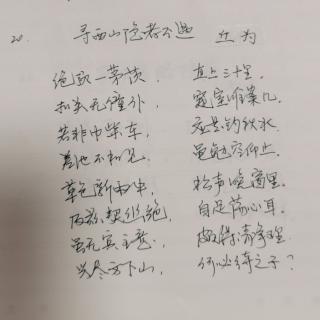 20. 寻西山隐者不遇 丘为
绝顶一茅茨, 直上三十里。
扣关无僮仆, 窥室唯案几。
若非巾柴车, 应是钓秋水。
差池不相见, 黾勉空仰止。
草色新雨中, 松声晚窗里。
及兹契幽绝, 自足荡心耳。
虽无宾主意, 颇得清净理。
兴尽方下山, 何必待之子?